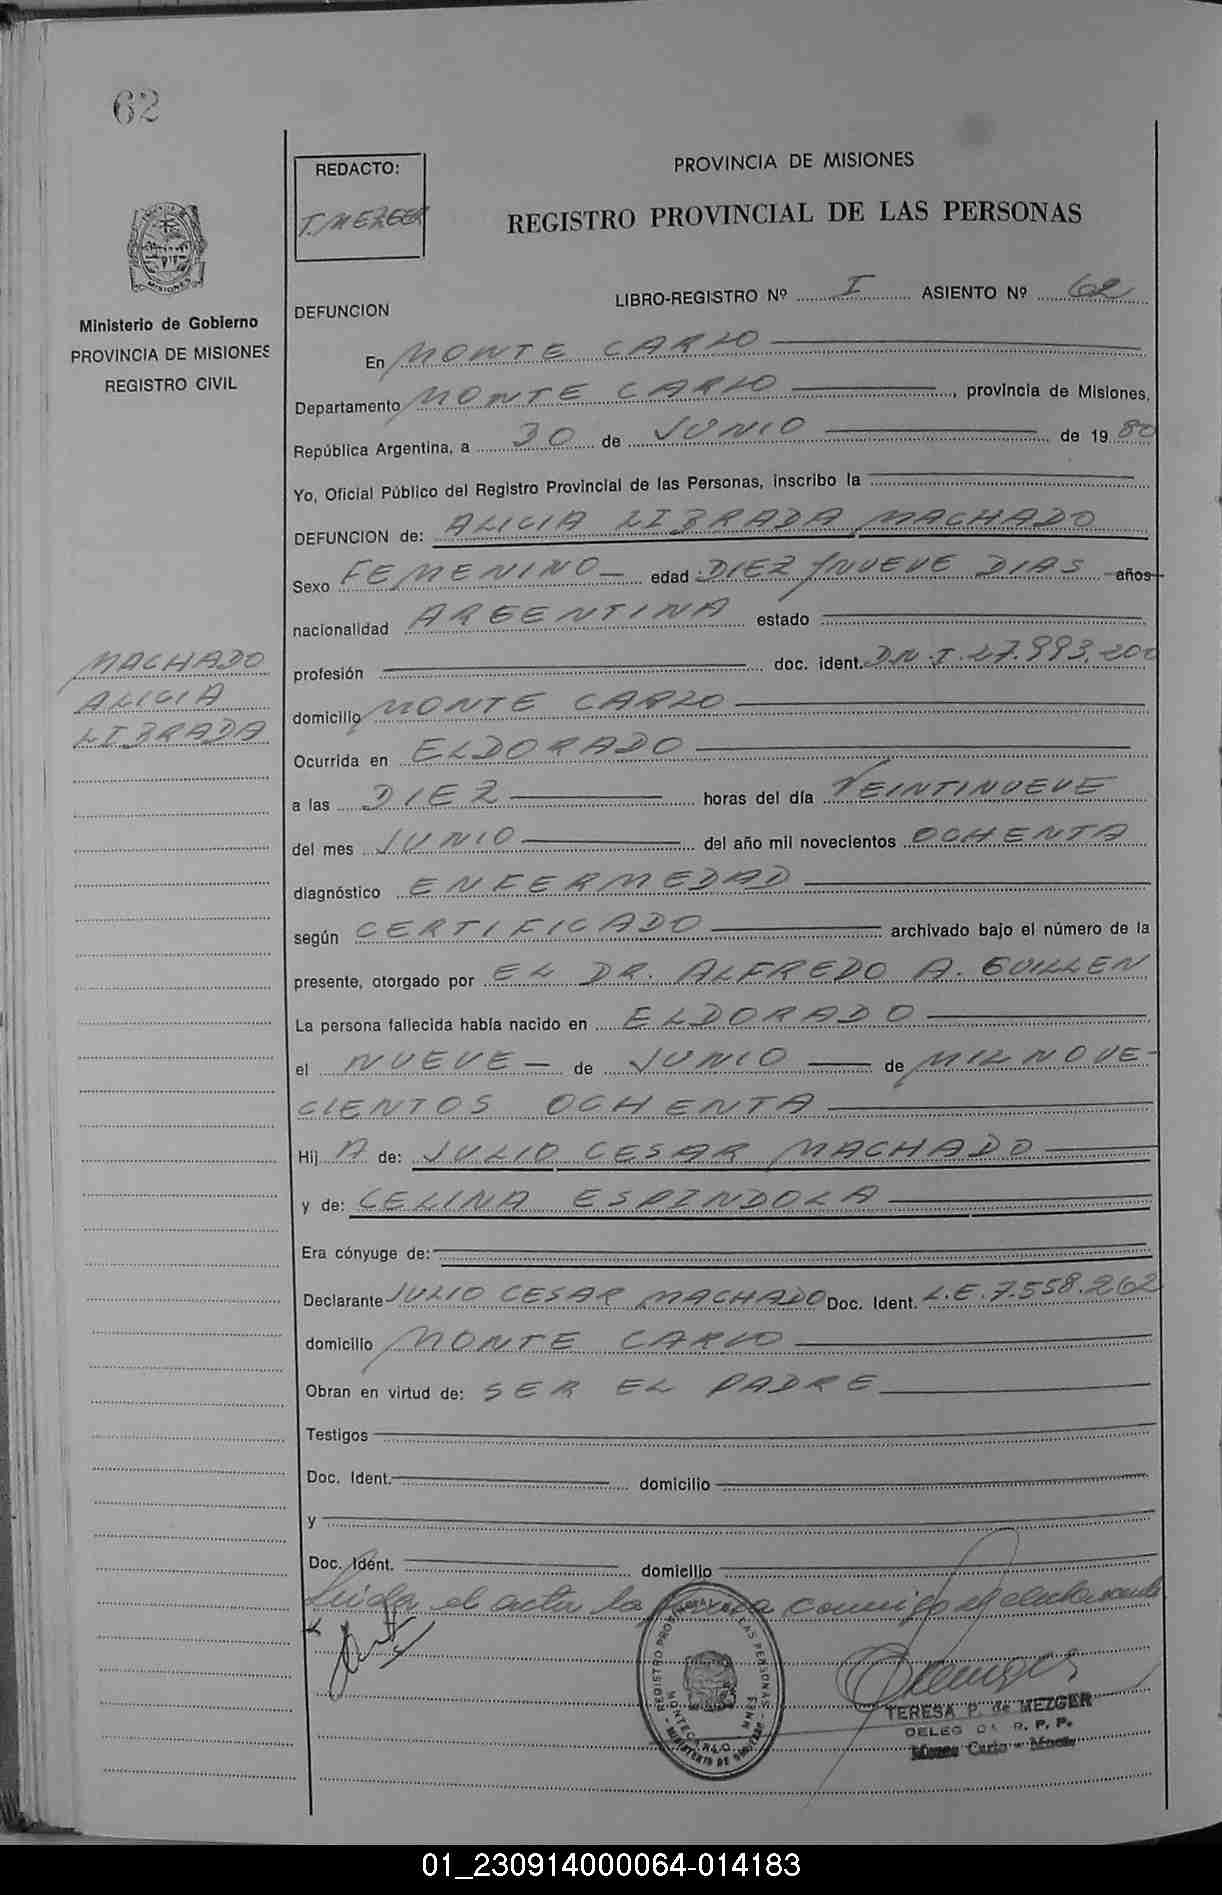 62
REDACTO:
T. MEZGER
PROVINCIA DE MISIONES
REGISTRO PROVINCIAL DE LAS PERSONAS
MISIONES
Ministerio de Gobierno
PROVINCIA DE MISIONES
REGISTRO CIVIL
DEFUNCION
LIBRO-REGISTRO Nº I ASIENTO Nº 62
En MONTE CARLO
Departamento MONTE CARLO, provincia de Misiones,
República Argentina, a 30 de JUNIO de 1980
Yo, Oficial Público del Registro Provincial de las Personas, inscribo la
DEFUNCION de: ALICIA LIBRADA MACHADO
Sexo FEMENINO edad DIEZ Y NUEVE DIAS años
nacionalidad ARGENTINA estado
MACHADO
ALICIA
LIBRADA
profesión doc. ident. D.N.I. 27.993.200
domicilio MONTE CARLO
Ocurrida en ELDORADO
a las DIEZ horas del día VEINTINUEVE
del mes JUNIO del año mil novecientos OCHENTA
diagnóstico ENFERMEDAD
según CERTIFICADO archivado bajo el número de la
presente, otorgado por EL DR. ALFREDO A. GUILLEN
La persona fallecida había nacido en ELDORADO
el NUEVE de JUNIO de MIL NOVE-
CIENTOS OCHENTA
Hij A de: JULIO CESAR MACHADO
y de: CELINA ESPINDOLA
Era cónyuge de:
Declarante JULIO CESAR MACHADO Doc. Ident. L.E. 7.558.262
domicilio MONTE CARLO
Obran en virtud de: SER EL PADRE
Testigos
Doc. Ident. domicilio
y
Doc. Ident. domicilio
Leida el acta la firma conmigo el declarante
REGISTRO PROVINCIAL DE LAS PERSONAS
MONTECARLO MNES
MINISTERIO DE GOBIERNO
TERESA P. de MEZGER
DELEG R. P. P.
Monte Carlo - Mnes
01_230914000064-014183